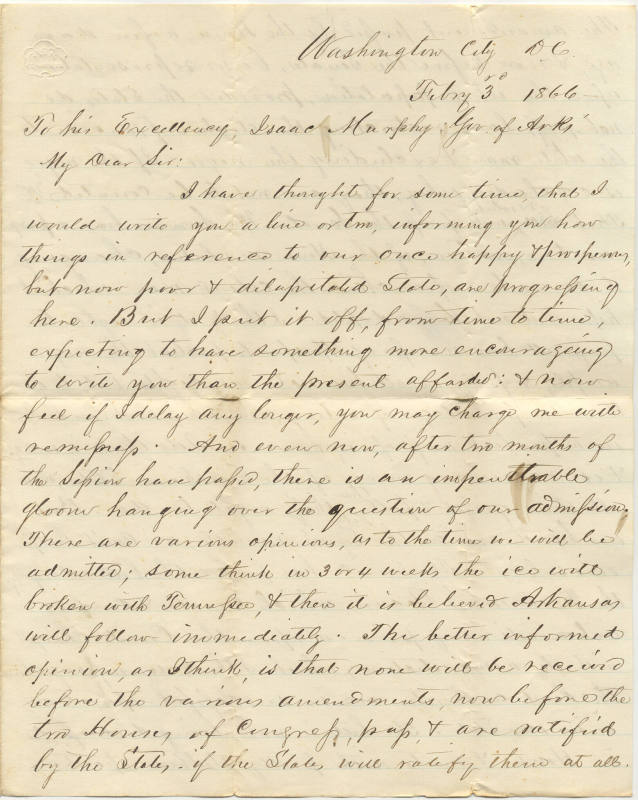 Washington City D.C.
Febry 3rd 1866
To his Excellency, Isaac Murphy: Gov. of Arks
My Dear Sir:
I have thought for some time, that I
would write you a line or two, informing you how
things in reference to our once happy & prosperous,
but now poor & dilapitated State, are progressing
here. But I put it off, from time to time,
expecting to have something more encourageing
to write you than the present afforded: & now
feel if I delay any longer, you may charge me with
remissness. And even now, after two months of
the Session have passed, there is an impenetrable
gloom hanging over the question of our admission.
There are various opinions, as to the time we will be
admitted; some think in 3 or 4 weeks the ice will
broken with Tennessee, & then it is believed Arkansas
will follow immediately. The better informed
opinion, as I think, is that none will be received
before the various amendments, now before the
two Houses of Congress, pass, & are ratified
by the States, if the States will ratify them at all.